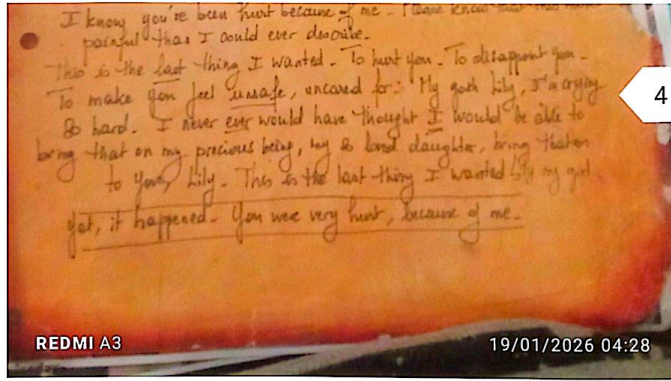 I know you've been hurt because of me. Please know that this
painful than I could ever describe.
This is the last thing I wanted. To hurt you. To disappoint you.
To make you feel unsafe, uncared for. My gosh Lily, I'm crying
so hard. I never ever would have thought I would be able to
bring that on my precious being, my so loved daughter, bring that on
to you, Lily. This is the last thing I wanted Lily my girl
yet, it happened. You were very hurt, because of me.
4
REDMI A3
19/01/2026 04:28